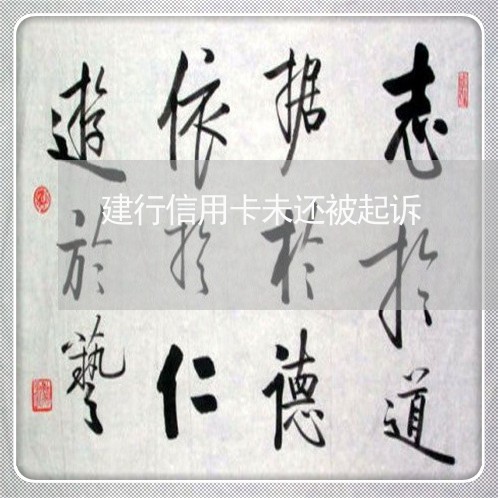 志於道
据於德
依於仁
遊於藝
建行信用卡未还被起诉